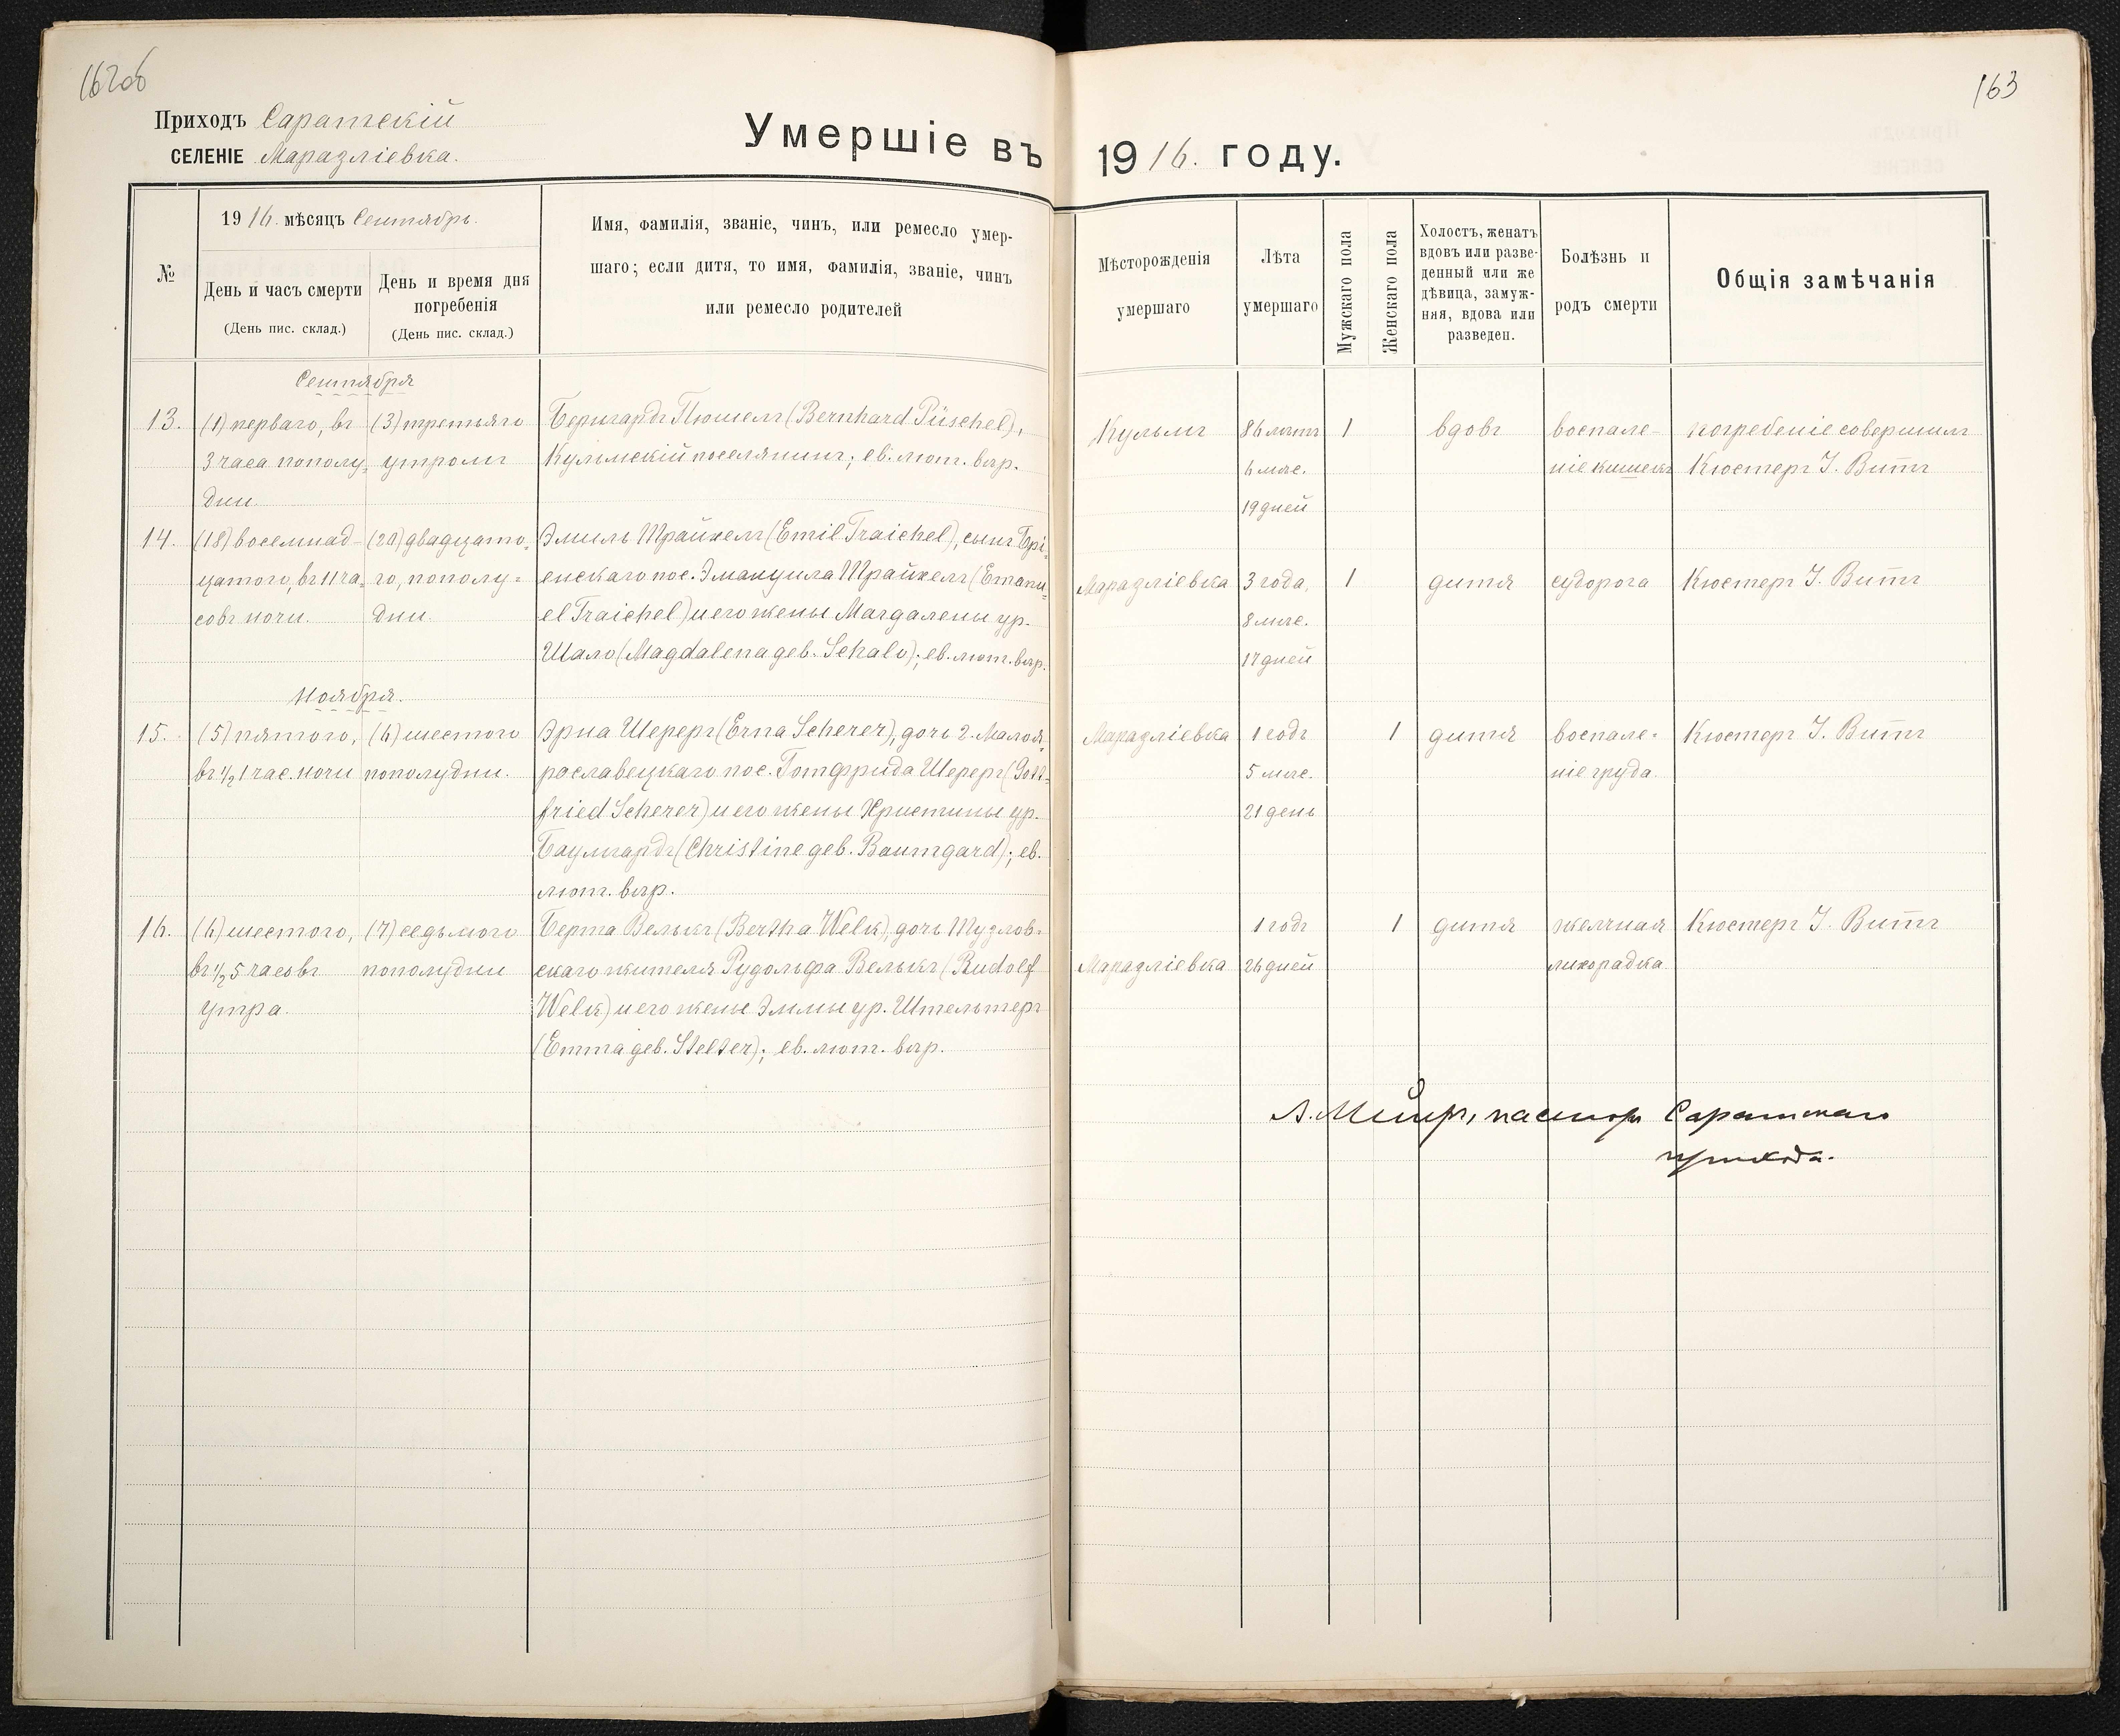 162об
163
Приходъ Саратскій
СЕЛЕНІЕ Маразліевка.
Умершіе въ 1916. году.
№
1916. мѣсяцъ Сентябрь.
День и часъ смерти
(День пис. склад.)
День и время дня
погребенія
(День пис. склад.)
Имя, фамилія, званіе, чинъ, или ремесло умер-
шаго; если дитя, то имя, фамилія, званіе, чинъ
или ремесло родителей
Мѣсторожденія
умершаго
Лѣта
умершаго
Мужскаго пола
Женскаго пола
Холостъ, женатъ
вдовъ или разве-
денный или же
дѣвица, замуж-
няя, вдова или
разведен.
Болѣзнь и
родъ смерти
Общія замѣчанія
Сентября
13.
(1) перваго, въ
3 часа пополу-
дни.
(3) третьяго
утромъ
Бернгардъ Пюшелъ (Bernhard Püschel),
Кульмскій поселянинъ; ев. лют. вѣр.
Кульмъ
86 лѣтъ
6 мѣс.
19 дней
1
вдовъ
воспале-
ніе кишекъ
погребеніе совершилъ
Кюстеръ І. Витъ
14.
(18) восемнад-
цатаго, въ 11 ча-
совъ ночи.
(20) двадцато-
го, пополу-
дни.
Эмиль Трайхелъ (Emil Traichel), сынъ Брі-
енскаго пос. Эмануила Трайхелъ (Emanu-
el Traichel) и его жены Магдалены ур.
Шало (Magdalena geb. Schalo); ев. лют. вѣр.
Маразліевка
3 года,
8 мѣс.
17 дней
1
дитя
судорога
Кюстеръ І. Витъ
Ноября.
15.
(5) пятого,
въ ½ 1 час. ночи
(6) шестого
пополудни.
Эрна Шереръ (Erna Scherer), дочь 2. Малоя-
рославецкаго пос. Готфрида Шереръ (Gott-
fried Scherer) и его жены Христины ур.
Баумгардъ (Christine geb. Baumgard); ев.
лют. вѣр.
Маразліевка
1 годъ
5 мѣс.
21 день
1
дитя
воспале-
ніе груда.
Кюстеръ І. Витъ
16.
(6) шестого,
въ ½ 5 часовъ
утра.
(7) седьмого
пополудни
Берта Велькъ (Bertha Welk), дочь Тузлов-
скаго жителя Рудольфа Велькъ (Rudolf
Welk) и его жены Эммы ур. Штельтеръ
(Emma geb. Stelter); ев. лют. вѣр.
Маразліевка
1 годъ
26 дней
1
дитя
желчная
лихорадка
Кюстеръ І. Витъ
А. Мейеръ, пасторъ Саратскаго
прихода.